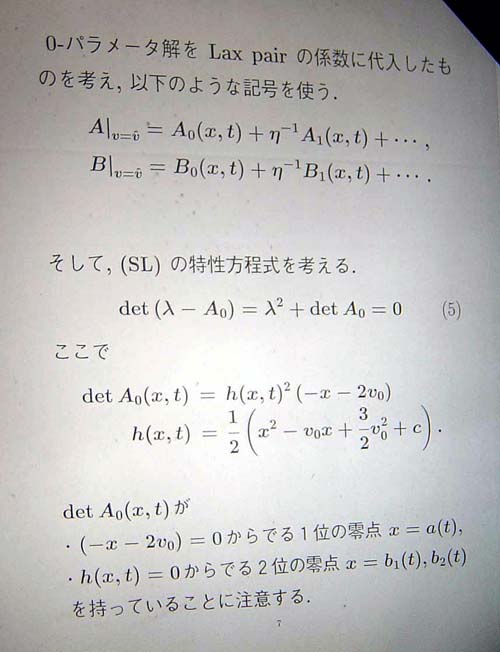 0-パラメータ解を Lax pair の係数に代入したも
のを考え, 以下のような記号を使う.
A|_{v=v̂} = A₀(x, t) + η⁻¹A₁(x, t) + ⋯ ,
B|_{v=v̂} = B₀(x, t) + η⁻¹B₁(x, t) + ⋯ .
そして, (SL) の特性方程式を考える.
det (λ − A₀) = λ² + det A₀ = 0 (5)
ここで
det A₀(x, t) = h(x, t)² (−x − 2v₀)
h(x, t) = 1/2 (x² − v₀x + 3/2 v₀² + c) .
det A₀(x, t) が
· (−x − 2v₀) = 0 からでる 1 位の零点 x = a(t),
· h(x, t) = 0 からでる 2 位の零点 x = b₁(t), b₂(t)
を持っていることに注意する.
7